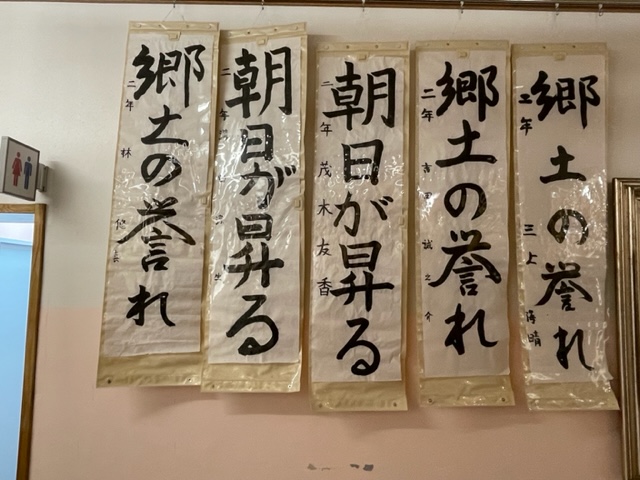 郷土の誉れ
二年
三上
晴
郷土の誉れ
二年
吉田誠之介
朝日が昇る
二年 茂木友香
朝日が昇る
二年
郷土の誉れ
二年 林